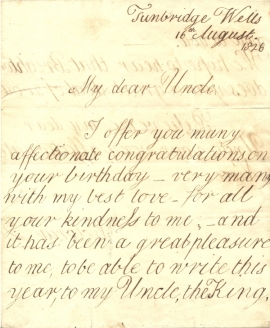 Tunbridge Wells
16th August.
1826
My dear Uncle,
I offer you many
affectionate congratulations on
your birthday – very many
with my best love – for all
your kindness to me, – and
it has been a great pleasure
to me, to be able to write this
year, to my Uncle, the King.